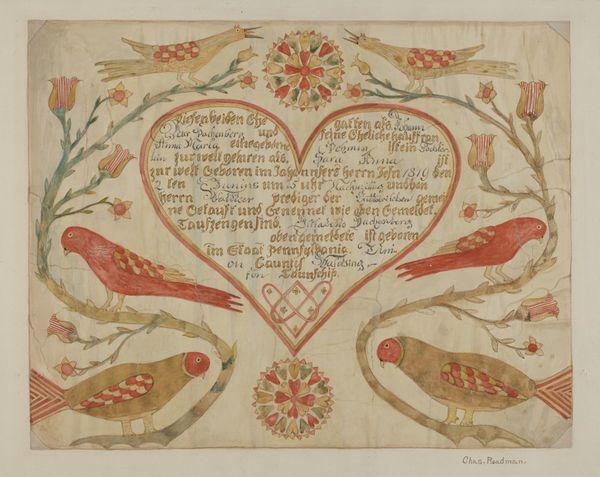 Diesen beiden Ehe gatten als Johann
Peter Dachenberg und seine Eheliche haußfrau
Anna Maria eine geborne ist ein Tochter
lein zur welt gehoren als, Sara Anna ist
zur welt Geboren im Jahr unsers herrn Jesu 1819 den
2 ten Junius um 5 uhr Nachmittag und von
herrn prediger der Lutherischen gemei
ne Getauft und Genennet wie oben Gemeldet.
Taufzengen sind, Elisabeth Dachenberg
oben gemeldete ist geboren
im Staat Pennsylvania
on Caunti
ton Taunschip.
Chas. Readman.